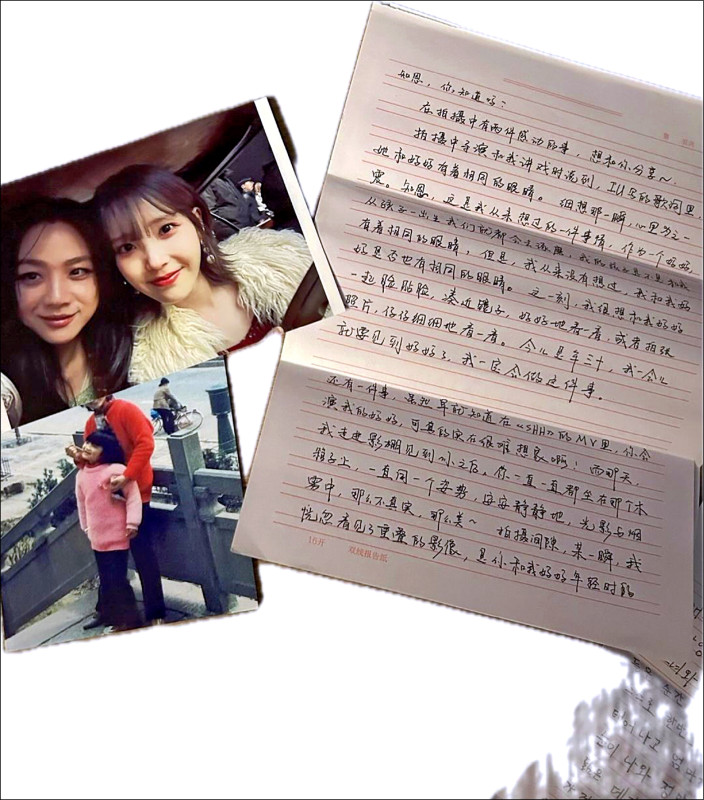 知恩，你知道吗？
在拍摄中有两件感动的事，想和你分享～
拍摄中导演和我讲戏时说到，IU写的歌词里，
她和妈妈有着相同的眼睛。细想那一瞬，心里为之一
震。知恩，这是我从未想过的一件事情，作为一个妈妈，
从孩子一出生我们就都会去 我的孩子是不是和我
有着相同的眼睛，但是，我从来没有想过，我和我妈
妈是否也有相同的眼睛。这一刻，我很想和我妈妈
一起脸贴脸，凑近镜子，好好地看一看，或者拍张
照片，仔仔细细地看一看。今儿是年三十，我一会儿
就要见到妈妈了，我一定会做这件事。
还有一件事，虽然早就知道在《SHH》的MV里，你会
演我的妈妈，可真的实在很难想象啊！而那天，
我走进影棚见到你之后，你一直一直都坐在那个木
椅子上，一直用一个姿势，安安静静地，光影与烟
雾中，那么不真实，那么美～ 拍摄间隙，某一瞬，我
恍忽看见了重叠的影像，是你和我妈妈年轻时的
16开 双线报告纸